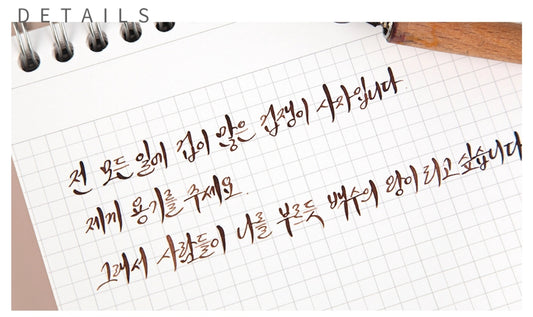 DETAILS
전 모든 일에 겁이 많은 겁쟁이 사자입니다
제게 용기를 주세요.
그래서 사람들이 나를 부르듯 백수의 왕이 되고 싶습니다